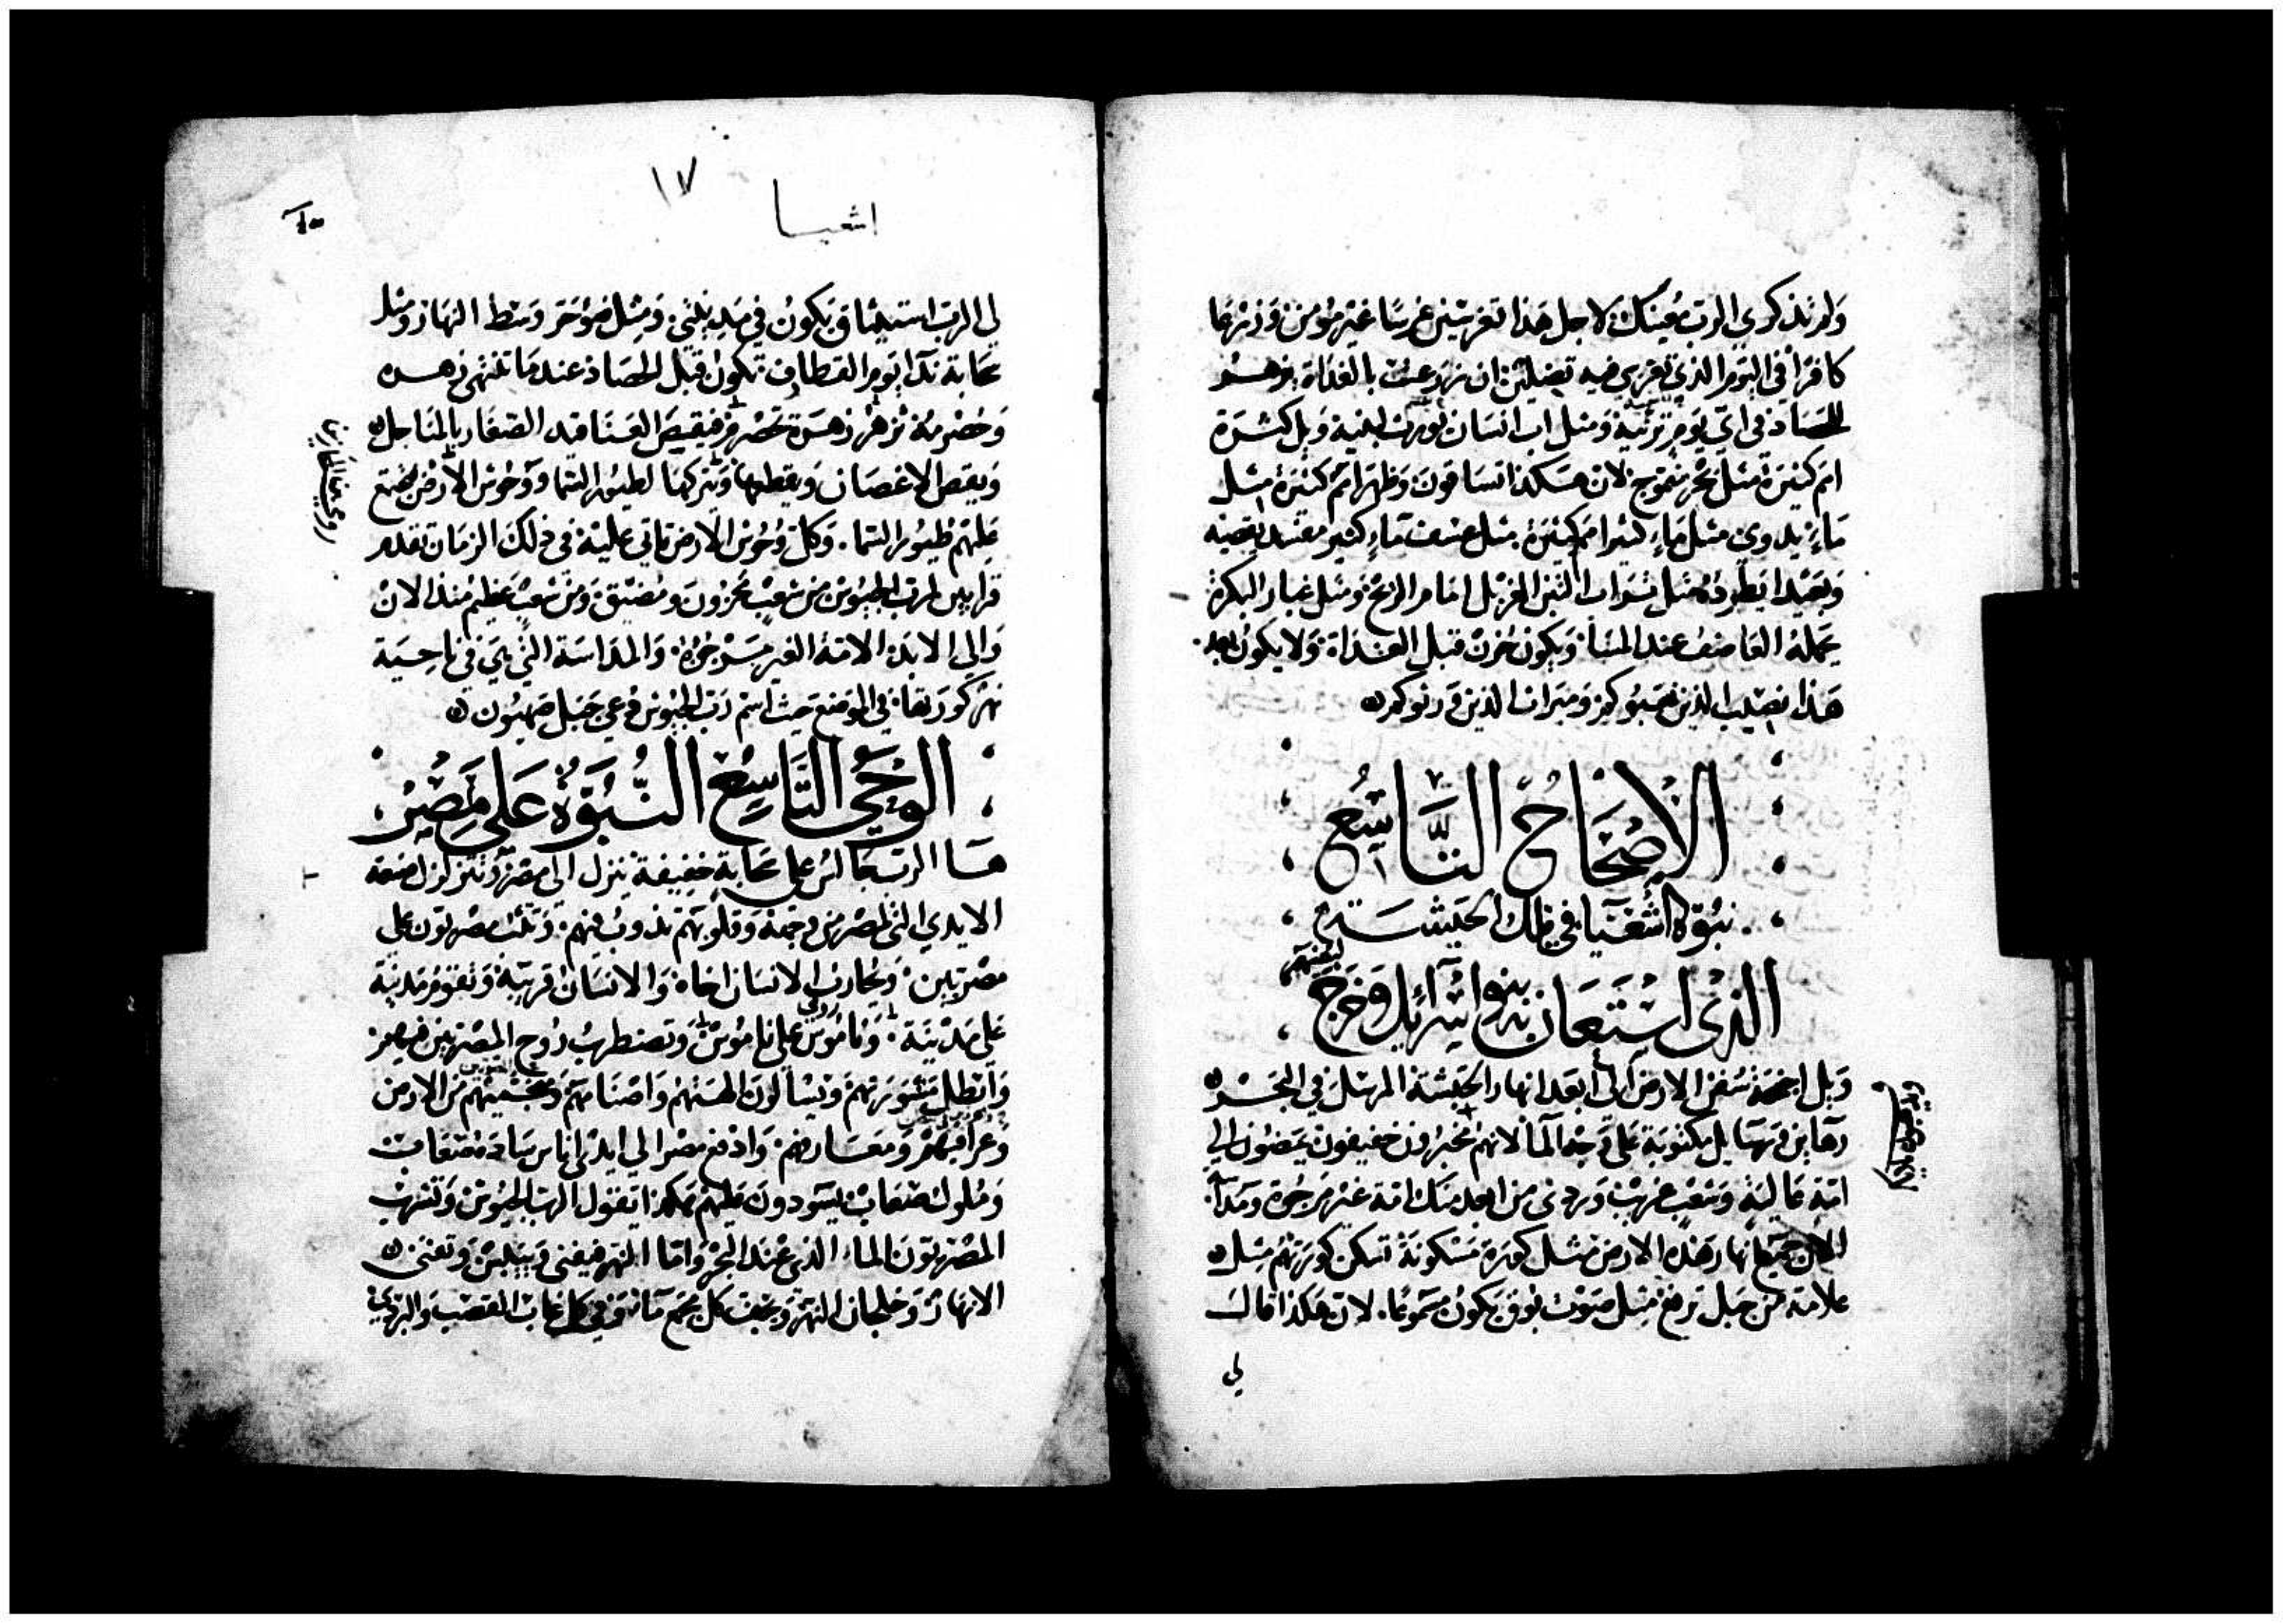 ولم تذكري الرب معينك لاجل هذا تغرسين غرسا غير مومن وزرعا
كافرا في اليوم الذي تغرسي فيه تضلين ان زرعت بالغداة يزهر
للحصاد في اي يوم ترثية ومثل اب انسان تورث لبنيه ويل كثرة
امم كثيرة مثل بحر متموج لان هكذا تساقون وظهر امم كثيرة مثل
ماء يدوي مثل ماء كثير امم كثيرة مثل عنف ماء كثير مقتدر
وبعيدا يطرده مثل تراب التبن المغربل امام الريح ومثل غبار البكرة
يحمله العاصف عند المسا ويكون حزن قبل الغداة ولا يكون بعد
هذا نصيب الذين نهبوكم وميراث الذين ورثوكم
الاصحاح التاسع
نبوة اشعيا في ملك الحبشة
الذي استعان به بنوا اسرائيل وخرج لمعونتهم
ويل اجنحة سفن الارض التي ابعد انهار الحبشة المرسل في البحر
رهاين وصحايف مكتوبة على وجه الما لانهم مخبرون خفيفون يمضون الى
امة عالية وشعب غريب وردي من ابعد منك امة غير مرجوة ومداسة
الان جميع انهار هذه الارض مثل كورة مسكونة تسكن كورتهم مثل
علامة من جبل ترفع مثل صوت بوق يكون مسموعا لان هكذا قال
لي
اشعيا
١٧
لي الرب استيثاق يكون في مدينتي ومثل ضو حر وسط النهار ومثل
سحابة ندا يوم القطاف تكون قبل الحصاد عندما تنتهي زهره
وحضرمه تزهر زهرة تحصرم فيقص العناقيد الصغار بالمناجل
ويقص الاغصان ويقطعها وتتركها لطيور السما ووحوش الارض تجتمع
عليهم طيور السما وكل وحوش الارض تاتي عليه في ذلك الزمان تقدم
قرابين لرب الجيوش من شعب محزون ومضيق ومن شعب عظيم منذ الان
والى الابد الامة الغير مرجوة والمداسة التي هي في ناحية
نهر كورتها في الموضع حيث اسم رب الجيوش دعي جبل صهيون
الوحي التاسع النبوة على مصر
هذا الرب جالس على سحابة خفيفة ينزل الى مصر وتتزلزل صنعة
الايدي التي لمصر من وجهه وقلوبهم تذوب فيهم وتثب مصريون على
مصريين ويحارب الانسان اخاه والانسان قريبه وتقوم مدينة
على مدينة وناموس على ناموس وتضطرب روح المصريين فيهم
وابطل مشورتهم ويسالون الهتهم واصنامهم ومنجميهم من الارض
وعرافيهم وادفع مصر الى ايدي اناس سادة صعاب
وملوك صعاب يسودون عليهم هكذا يقول الرب الجيوش وتشرب
المصريون الماء الذي عند البحر واما النهر فيفنى وييبس وتفنى
الانهار وخلجان النهر ويجف كل مجمع ماء وفي كل غاب القصب والبردي